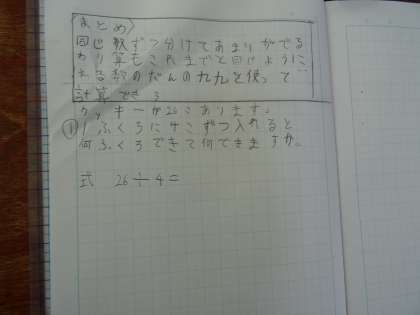 〈まとめ〉
同じ数ずつ分けてあまりがでる
わり算もこれまでと同じように
わる数のだんの九九を使って
計算できる
クッキーが26こあります。
① 1ふくろに4こずつ入れると
何ふくろできて何できますか。
式 26÷4=